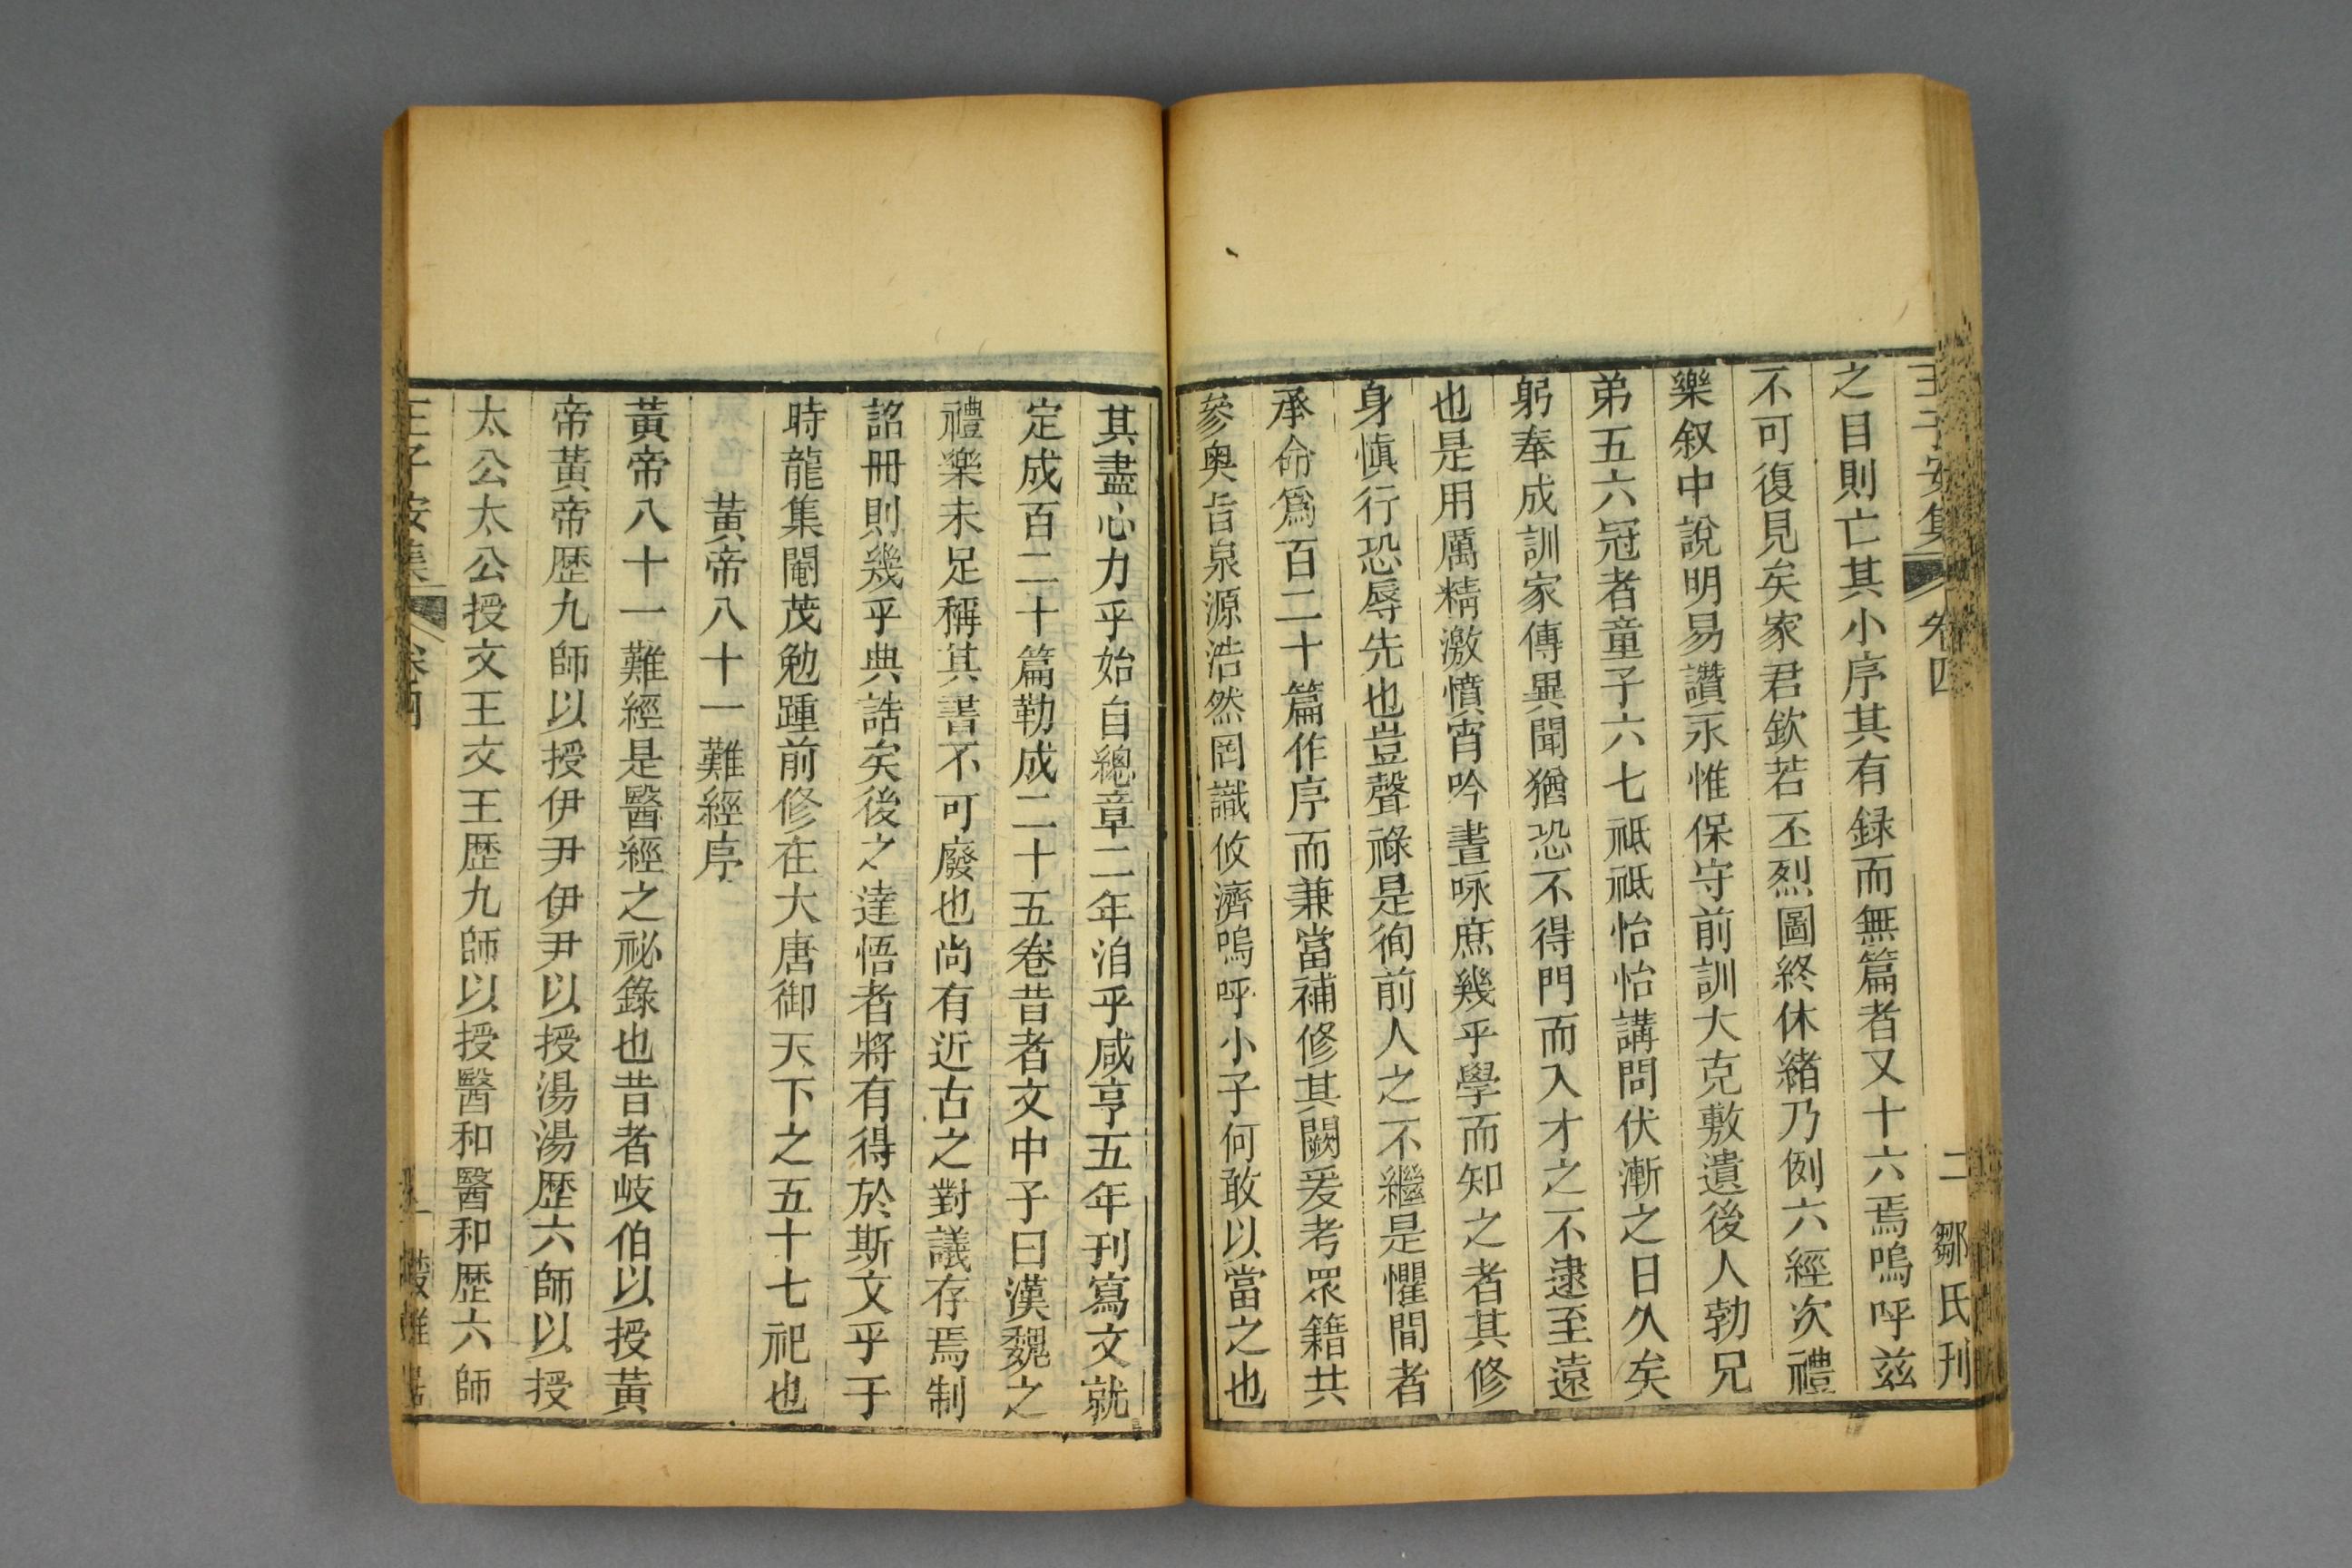 王子安集 卷四 二 鄒氏刊
之目則亡其小序其有録而無篇者又十六焉嗚呼兹
不可復見矣家君欽若丕烈圖終休緒乃例六經次禮
樂叙中說明易讚永惟保守前訓大克敷遺後人勃兄
弟五六冠者童子六七祗祗怡怡講問伏漸之日久矣
躬奉成訓家傳異聞猶恐不得門而入才之不逮至遠
也是用厲精激憤宵吟晝咏庶幾乎學而知之者其修
身慎行恐辱先也豈聲祿是徇前人之不繼是懼間者
承命爲百二十篇作序而兼當補修其闕爰考眾籍共
參奥旨泉源浩然罔識攸濟嗚呼小子何敢以當之也
其盡心力乎始自總章二年洎乎咸亨五年刊寫文就
定成百二十篇勒成二十五卷昔者文中子曰漢魏之
禮樂未足稱其書不可廢也尚有近古之對議存焉制
詔冊則幾乎典誥矣後之達悟者將有得於斯文乎于
時龍集閹茂勉踵前修在大唐御天下之五十七祀也
黃帝八十一難經序
黃帝八十一難經是醫經之祕錄也昔者岐伯以授黃
帝黃帝歷九師以授伊尹伊尹以授湯湯歷六師以授
太公太公授文王文王歷九師以授醫和醫和歷六師
王子安集 卷四